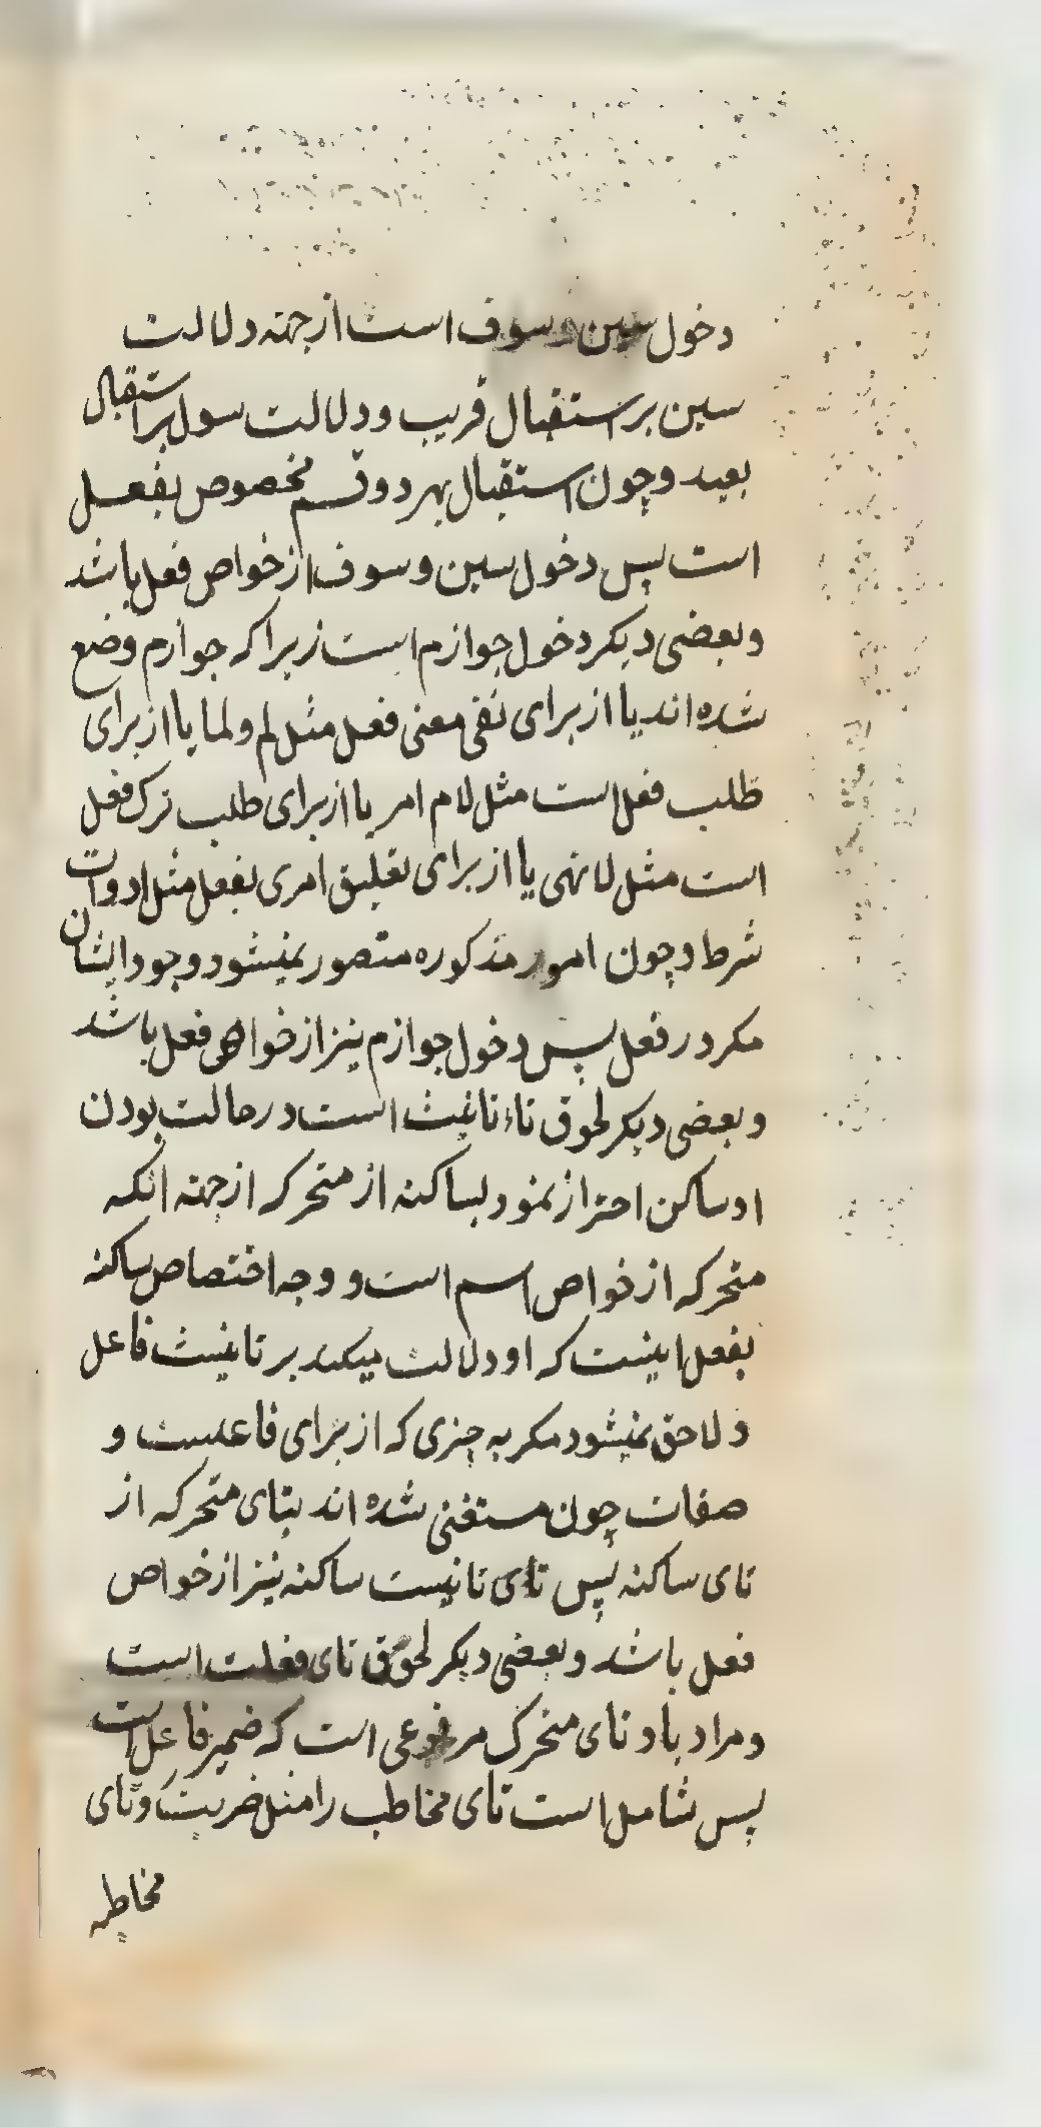 دخول سین و سوف است از جهته دلالت
سین بر استقبال قریب و دلالت سوف بر استقبال
بعید و چون استقبال بهر دو قسم مخصوص بفعل
است پس دخول سین و سوف از خواص فعل باشد
و بعضی دیکر دخول جوازم است زیرا که جوازم وضع
شده اند یا از برای نفی معنی فعل مثل لم و لما یا از برای
طلب فعل است مثل لام امر یا از برای طلب ترک فعل
است مثل لا نهی یا از برای تعلیق امری بفعل مثل ادوات
شرط و چون امور مذکوره متصور نمیشود وجود ایشان
مکر در فعل پس دخول جوازم نیز از خواص فعل باشد
و بعضی دیکر لحوق تاء تانیث است در حالت بودن
او ساکن احتراز نمود بساکنه از متحرکه از جهته انکه
متحرکه از خواص اسم است و وجه اختصاص ساکنه
بفعل اینست که او دلالت میکند بر تانیث فاعل
و لاحق نمیشود مکر به چیزی که از برای فاعلست و
صفات چون مستغنی شده اند بتای متحرکه از
تای ساکنه پس تای تانیست ساکنه نیز از خواص
فعل باشد و بعضی دیکر لحوق تای فعلت است
و مراد باو تای متحرک مرفوعی است که ضمیر فاعل است
پس شامل است تای مخاطب را مثل ضربتَ و تای
مخاطبه